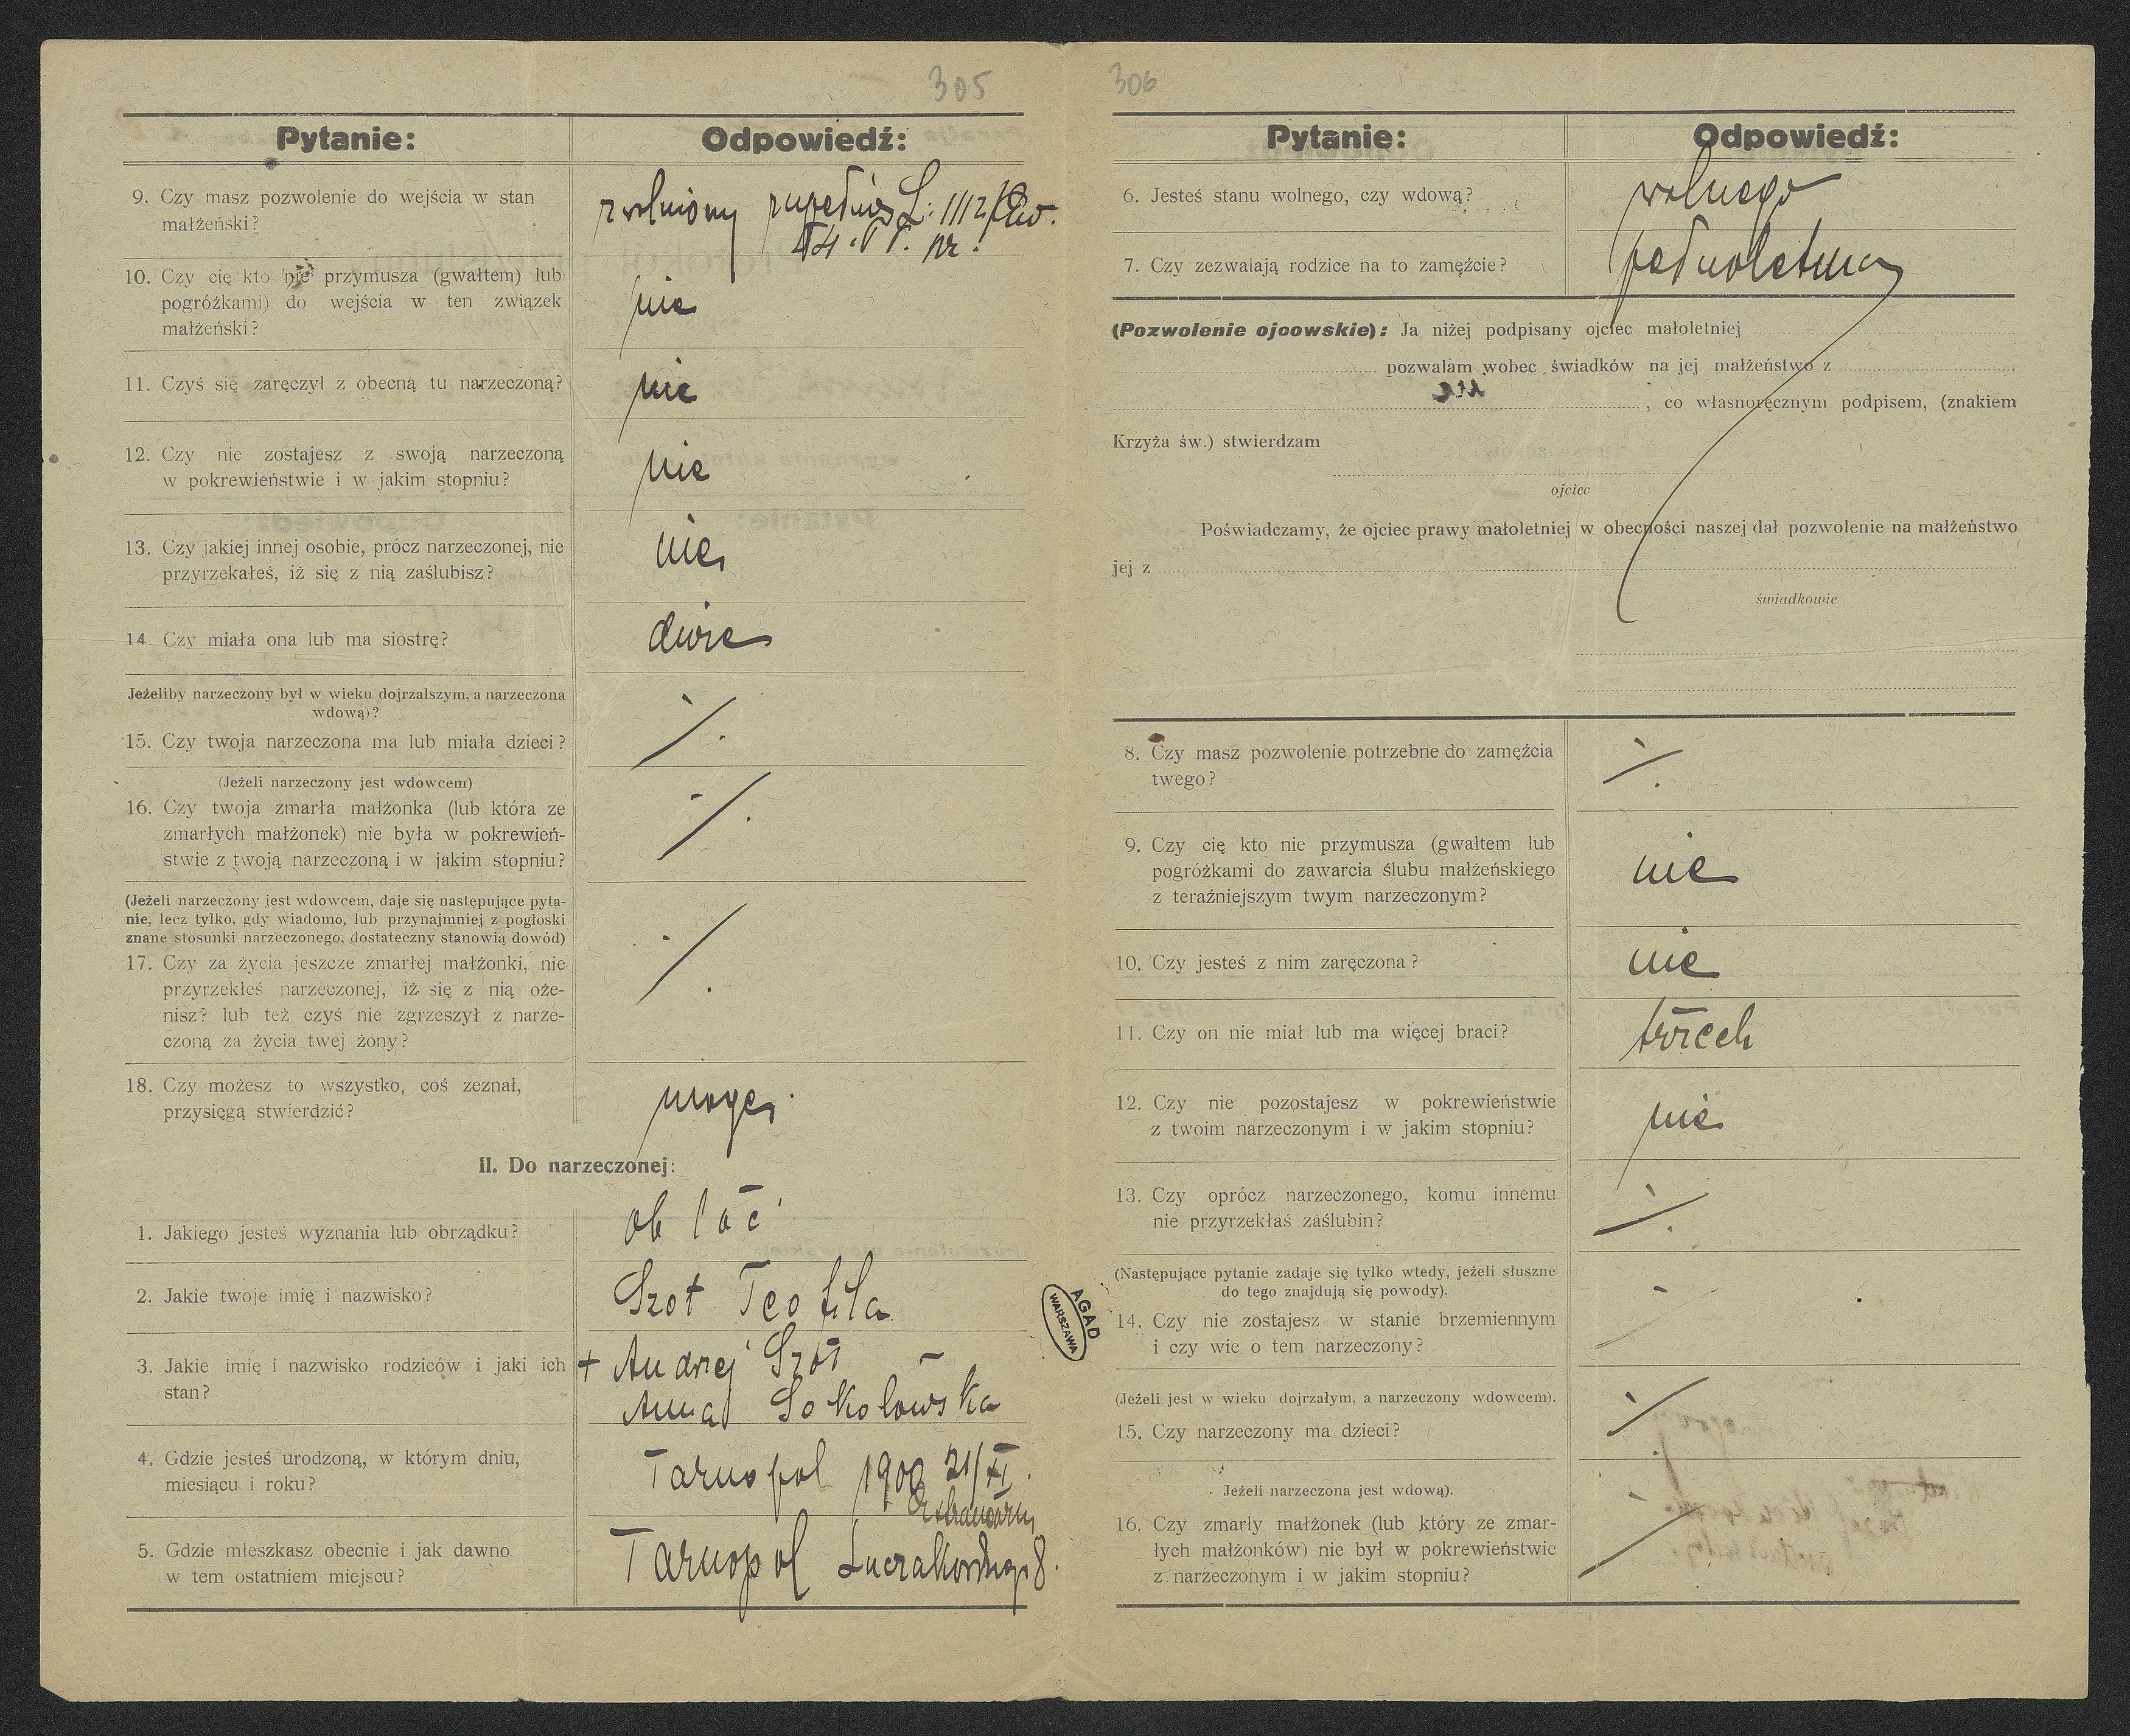 305
Pytanie:
Odpowiedź:
9. Czy masz pozwolenie do wejścia w stan
małżeński?
zwolniony zupełnie L: 1112
10. Czy cię kto nie przymusza (gwałtem) lub
pogróżkami) do wejścia w ten związek
małżeński?
nie
11. Czyś się zaręczył z obecną tu narzeczoną?
nie
12. Czy nie zostajesz z swoją narzeczoną
w pokrewieństwie i w jakim stopniu?
nie
13. Czy jakiej innej osobie, prócz narzeczonej, nie
przyrzekałeś, iż się z nią zaślubisz?
nie
14. Czy miała ona lub ma siostrę?
dwie
Jeżeliby narzeczony był w wieku dojrzalszym, a narzeczona
wdową)?
15. Czy twoja narzeczona ma lub miała dzieci?
(Jeżeli narzeczony jest wdowcem)
16. Czy twoja zmarła małżonka (lub która ze
zmarłych małżonek) nie była w pokrewień-
stwie z twoją narzeczoną i w jakim stopniu?
(Jeżeli narzeczony jest wdowcem, daje się następujące pyta-
nie, lecz tylko, gdy wiadomo, lub przynajmniej z pogłoski
znane stosunki narzeczonego, dostateczny stanowią dowód)
17. Czy za życia jeszcze zmarłej małżonki, nie
przyrzekłeś narzeczonej, iż się z nią oże-
nisz? lub też czyś nie zgrzeszył z narze-
czoną za życia twej żony?
18. Czy możesz to wszystko, coś zeznał,
przysięgą stwierdzić?
mogę
II. Do narzeczonej:
1. Jakiego jesteś wyznania lub obrządku?
ob łać
2. Jakie twoje imię i nazwisko?
Szot Teofila
3. Jakie imię i nazwisko rodziców i jaki ich
stan?
+ Andrzej Szot
Anna Sokołowska
4. Gdzie jesteś urodzoną, w którym dniu,
miesiącu i roku?
Tarnopol 1900 21/XI.
5. Gdzie mieszkasz obecnie i jak dawno
w tem ostatniem miejscu?
Tarnopol 8.
306
Pytanie:
Odpowiedź:
6. Jesteś stanu wolnego, czy wdową?
wolnego
7. Czy zezwalają rodzice na to zamęźcie?
pełnoletnia
(Pozwolenie ojcowskie): Ja niżej podpisany ojciec małoletniej
pozwalam wobec świadków na jej małżeństwo z
, co własnoręcznym podpisem, (znakiem
Krzyża św.) stwierdzam
ojciec
Poświadczamy, że ojciec prawy małoletniej w obecności naszej dał pozwolenie na małżeństwo
jej z
świadkowie
8. Czy masz pozwolenie potrzebne do zamęźcia
twego?
9. Czy cię kto nie przymusza (gwałtem lub
pogróżkami do zawarcia ślubu małżeńskiego
z teraźniejszym twym narzeczonym?
nie
10. Czy jesteś z nim zaręczona?
nie
11. Czy on nie miał lub ma więcej braci?
trzech
12. Czy nie pozostajesz w pokrewieństwie
z twoim narzeczonym i w jakim stopniu?
nie
13. Czy oprócz narzeczonego, komu innemu
nie przyrzekłaś zaślubin?
(Następujące pytanie zadaje się tylko wtedy, jeżeli słuszne
do tego znajdują się powody).
14. Czy nie zostajesz w stanie brzemiennym
i czy wie o tem narzeczony?
(Jeżeli jest w wieku dojrzałym, a narzeczony wdowcem).
15. Czy narzeczony ma dzieci?
Jeżeli narzeczona jest wdową).
16. Czy zmarły małżonek (lub który ze zmar-
łych małżonków) nie był w pokrewieństwie
z narzeczonym i w jakim stopniu?
AGAD
WARSZAWA